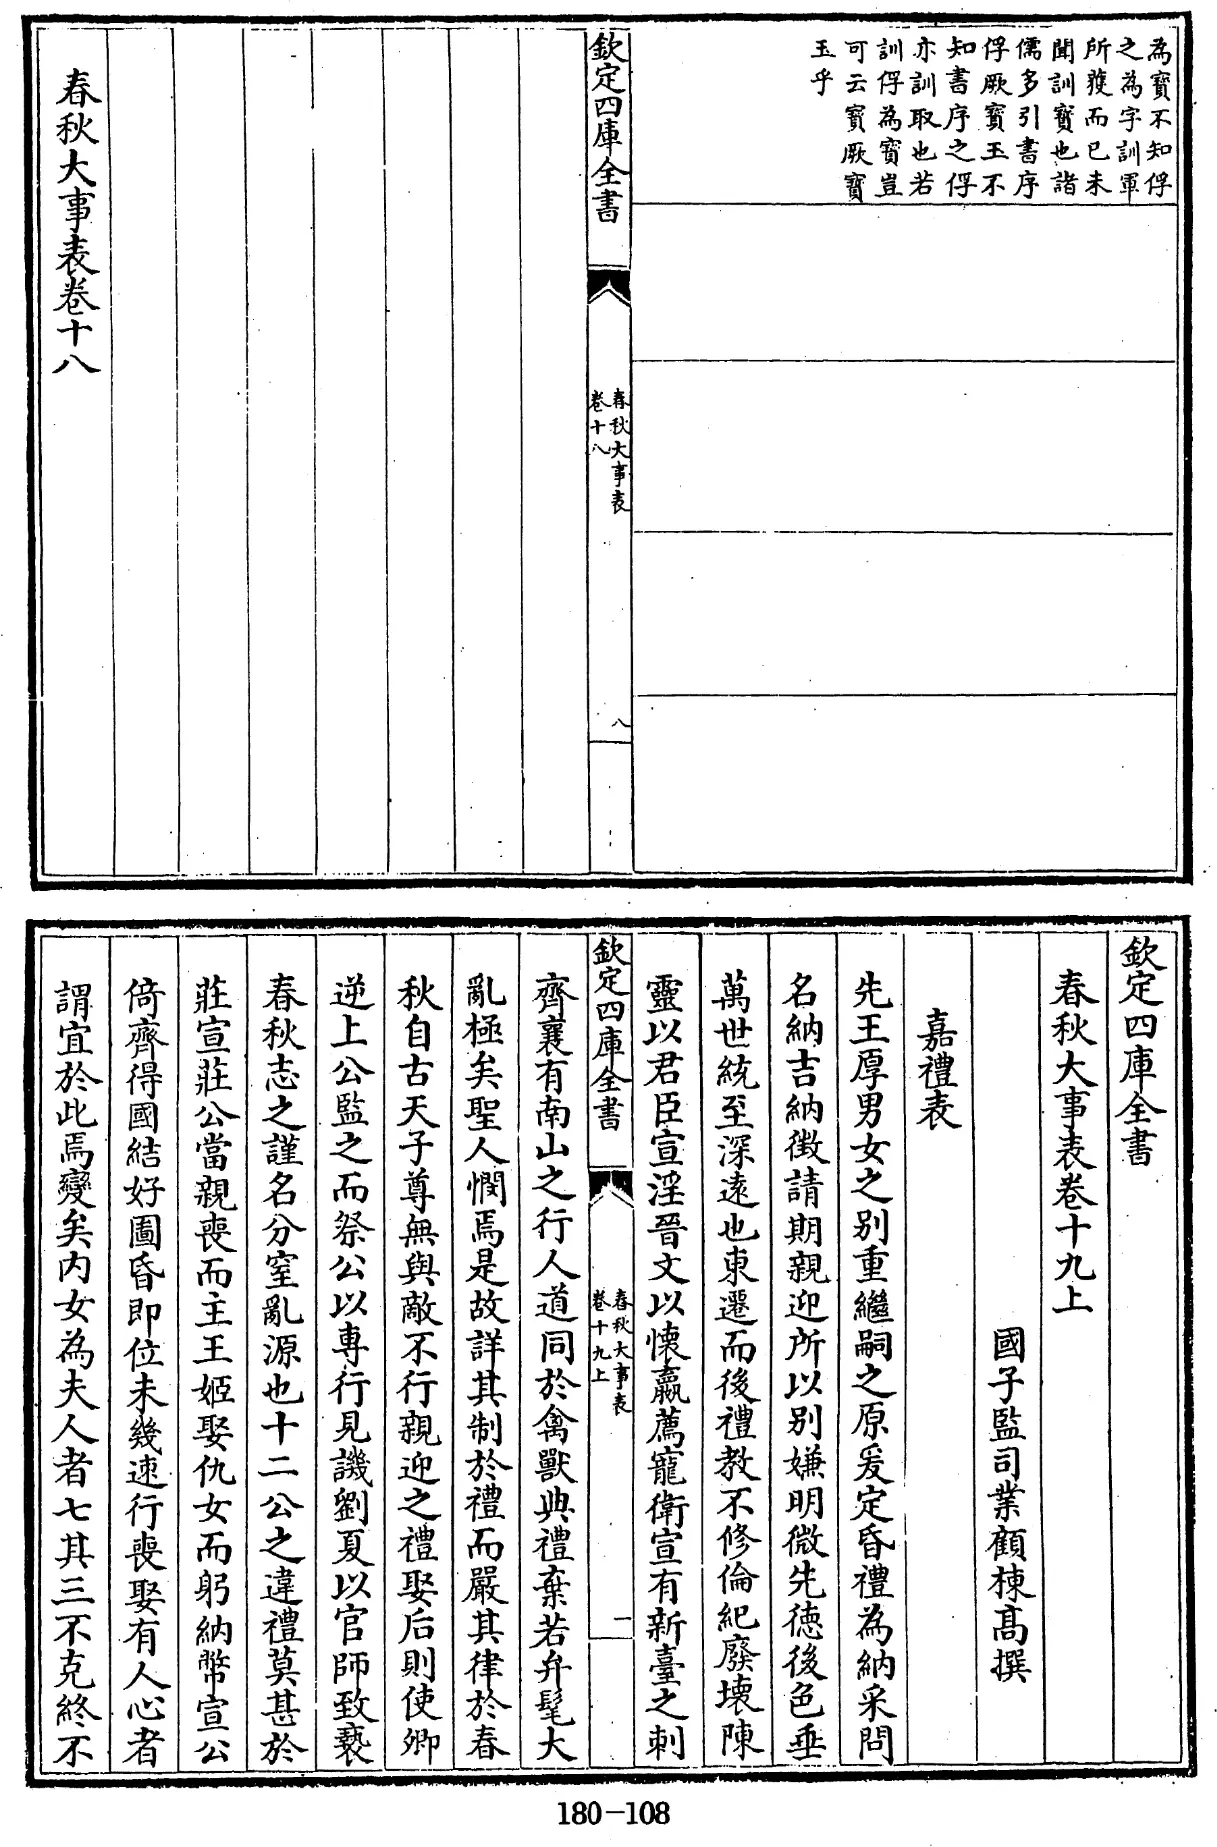 為寶不知俘
之為字訓軍
所獲而已未
聞訓寶也諸
儒多引書序
俘厥寶玉不
知書序之俘
亦訓取也若
訓俘為寶豈
可云寶厥寶
玉乎
欽定四庫全書
春秋大事表
卷十八
八
春秋大事表卷十八
欽定四庫全書
春秋大事表卷十九上
國子監司業顧棟高撰
嘉禮表
先王厚男女之别重繼嗣之原爰定昏禮為納采問
名納吉納徴請期親迎所以别嫌明微先徳後色垂
萬世統至深遠也東遷而後禮教不修倫紀廢壞陳
靈以君臣宣淫晉文以懐嬴薦寵衛宣有新臺之刺
欽定四庫全書
春秋大事表
卷十九上
一
齊襄有南山之行人道同於禽獸典禮棄若弁髦大
亂極矣聖人憫焉是故詳其制於禮而嚴其律於春
秋自古天子尊無與敵不行親迎之禮娶后則使卿
逆上公監之而祭公以専行見譏劉夏以官師致褻
春秋志之謹名分窒亂源也十二公之違禮莫甚於
莊宣莊公當親喪而主王姬娶仇女而躬納幣宣公
倚齊得國結好圖昏即位未幾速行喪娶有人心者
謂宜於此焉變矣内女為夫人者七其三不克終不
180-108